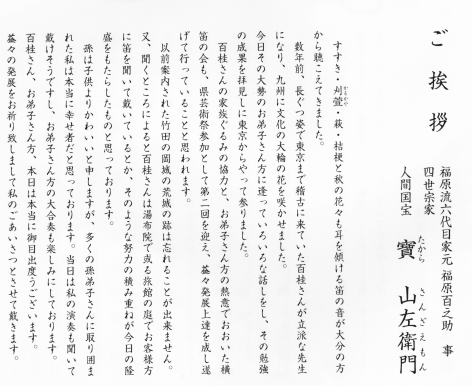 ご挨拶
福原流六代目家元 福原百之助 事
四世宗家
人間国宝 寶 山左衛門
たから さんざえもん
すすき・刈萱・萩・桔梗と秋の花々も耳を傾ける笛の音が大分の方
かるかや
から聴こえてきました。
数年前、長ぐつ姿で東京まで稽古に来ていた百桂さんが立派な先生
になり、九州に文化の大輪の花を咲かせました。
今日その大勢のお弟子さん方に逢っていろいろな話しをし、その勉強
の成果を拝見しに東京からやって参りました。
百桂さんの家族ぐるみの協力と、お弟子さん方の熱意でおおいた横
笛の会も、県芸術祭参加として第二回を迎え、益々発展上達を成し遂
げて行っていることと思われます。
以前案内された竹田の岡城の荒城の跡は忘れることが出来ません。
又、聞くところによると百桂さんは湯布院で或る旅館の庭でお客様方
に笛を聞いて戴いているとか、そのような努力の積み重ねが今日の隆
盛をもたらしたものと思っております。
孫は子供よりかわいいと申しますが、多くの孫弟子さんに取り囲ま
れた私は本当に幸せ者だと思っております。当日は私の演奏も聞いて
戴けそうですし、お弟子さん方の大合奏も楽しみにしております。
百桂さん、お弟子さん方、本日は本当に御目出度うございます。
益々の発展をお祈り致しまして私のごあいさつとさせて戴きます。